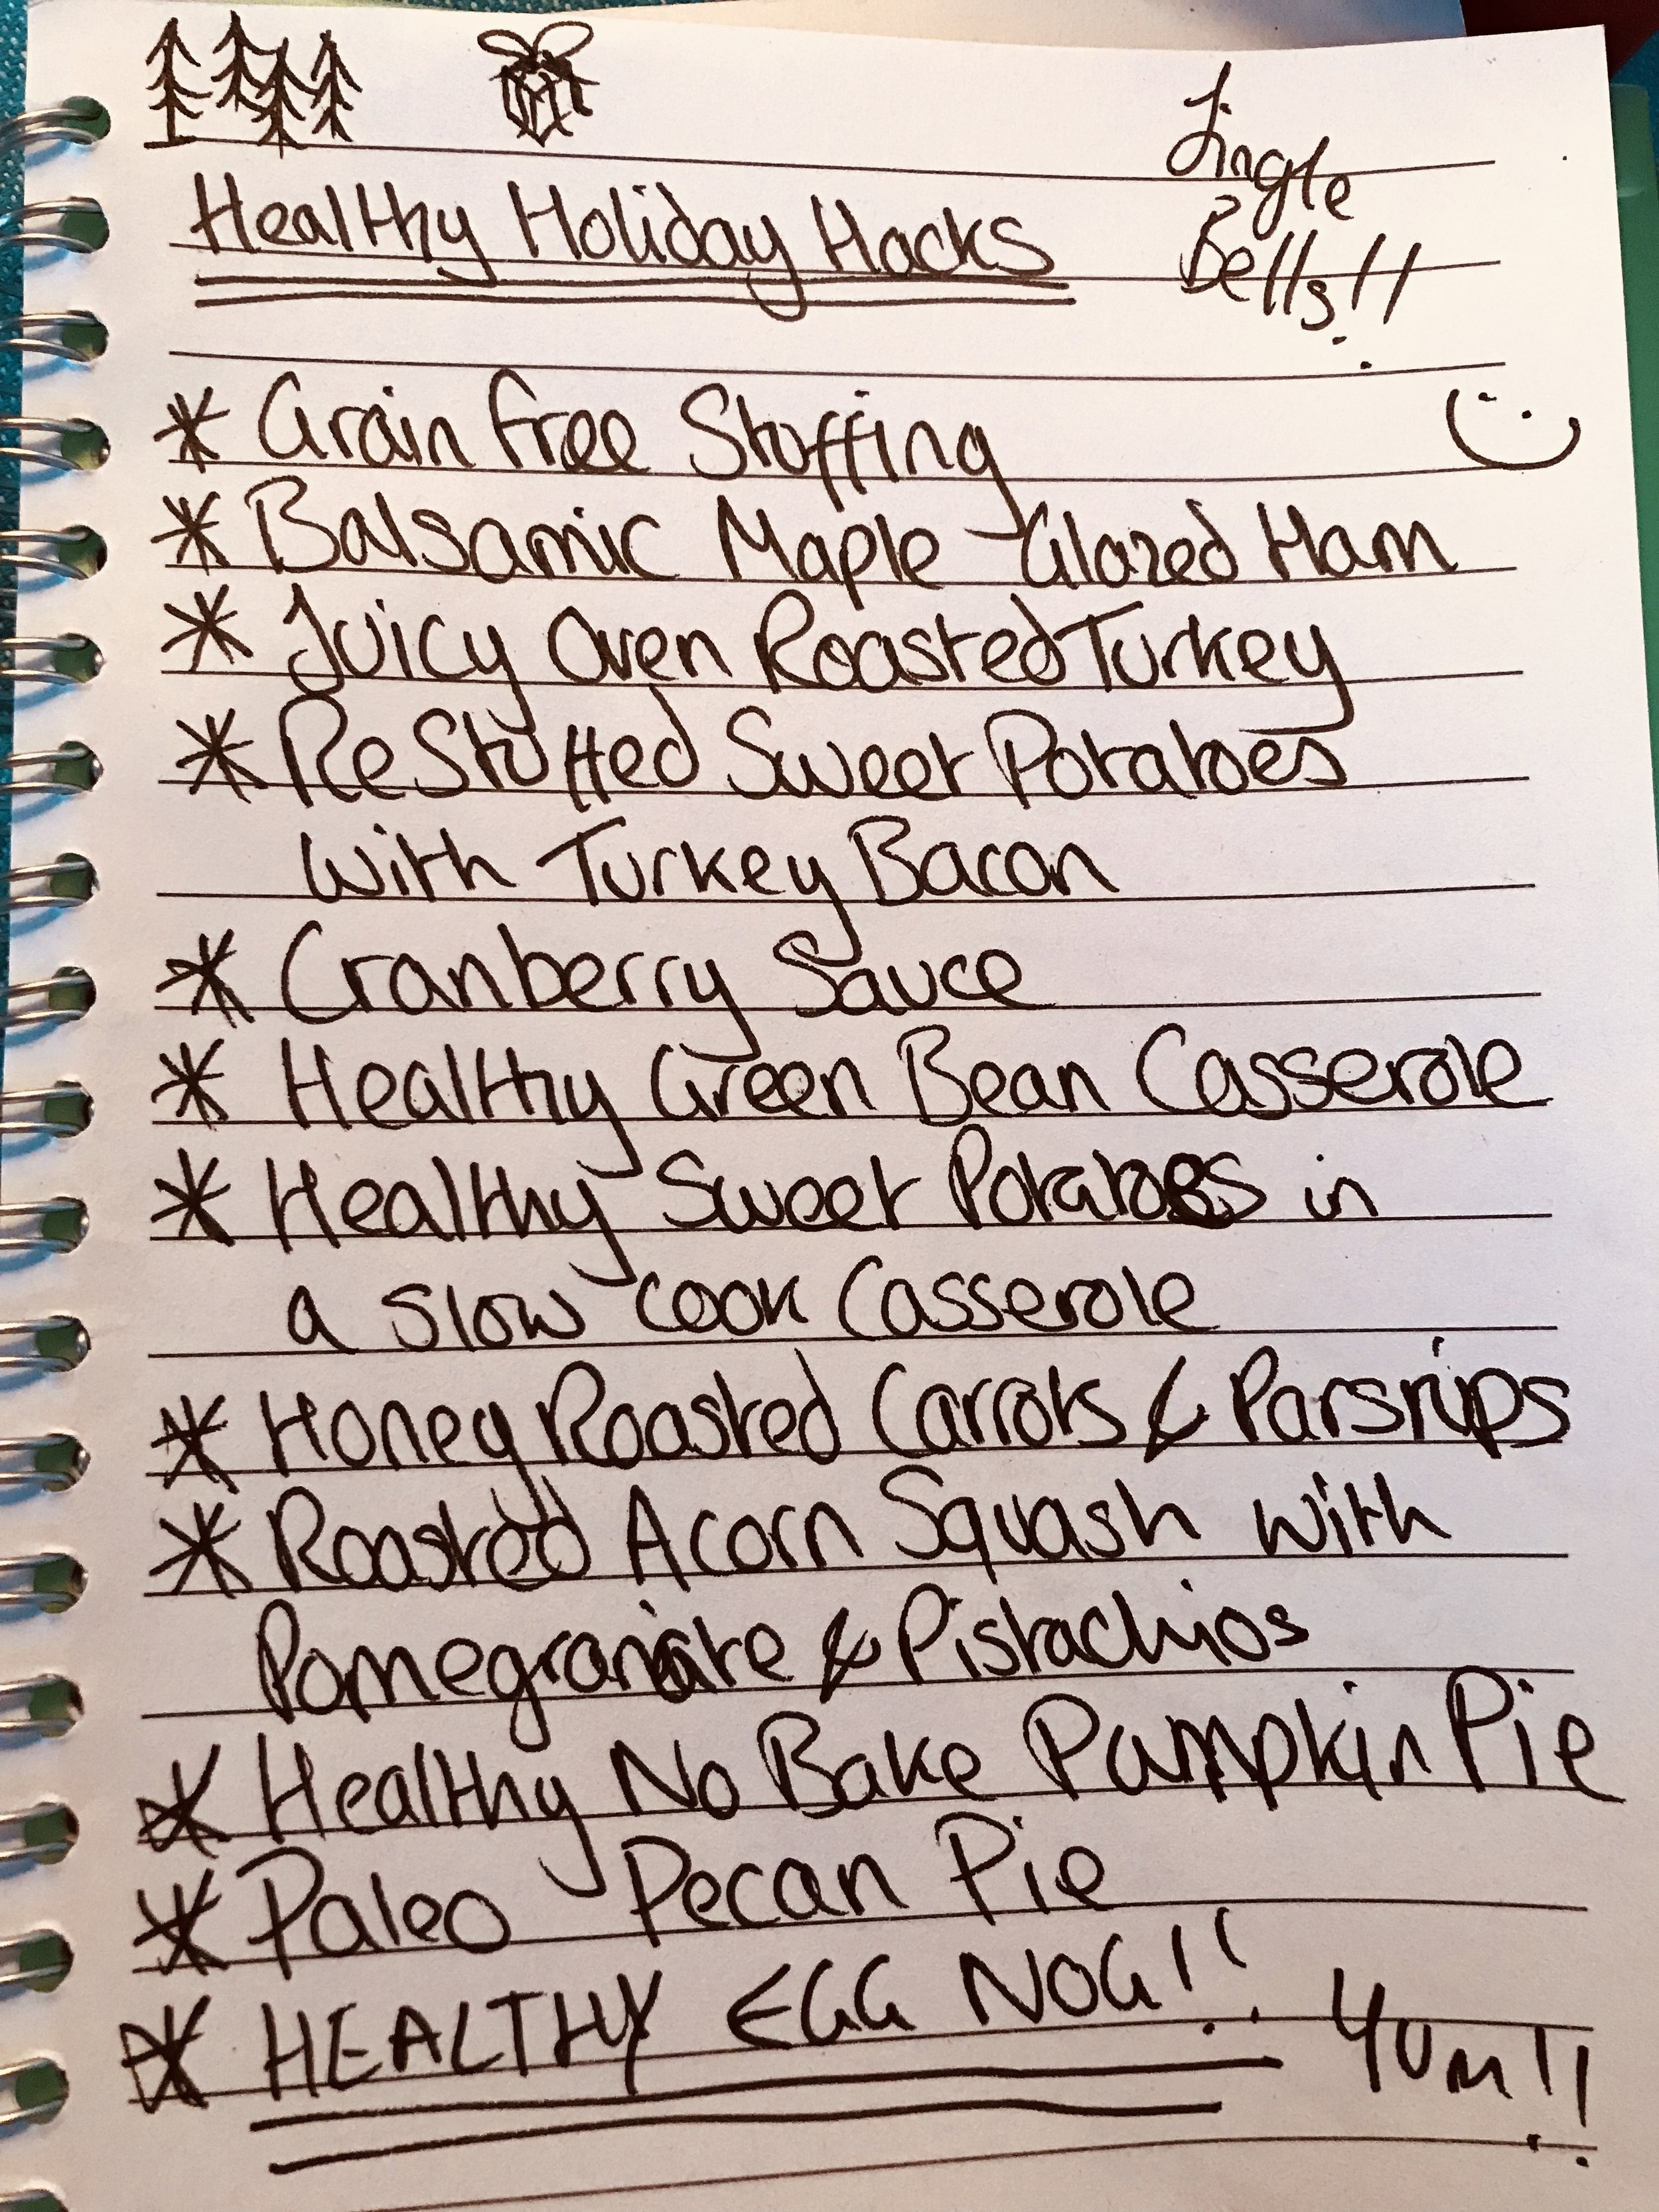 Jingle
Bells!!
Healthy Holiday Hacks
* Grain Free Stuffing
* Balsamic Maple Glazed Ham
* Juicy Oven Roasted Turkey
* ReStuffed Sweet Potatoes
with Turkey Bacon
* Cranberry Sauce
* Healthy Green Bean Casserole
* Healthy Sweet Potatoes in
a slow cook Casserole
* Honey Roasted Carrots & Parsnips
* Roasted Acorn Squash with
Pomegranate & Pistachios
* Healthy No Bake Pumpkin Pie
* Paleo Pecan Pie
* HEALTHY EGG NOG!! Yum!!